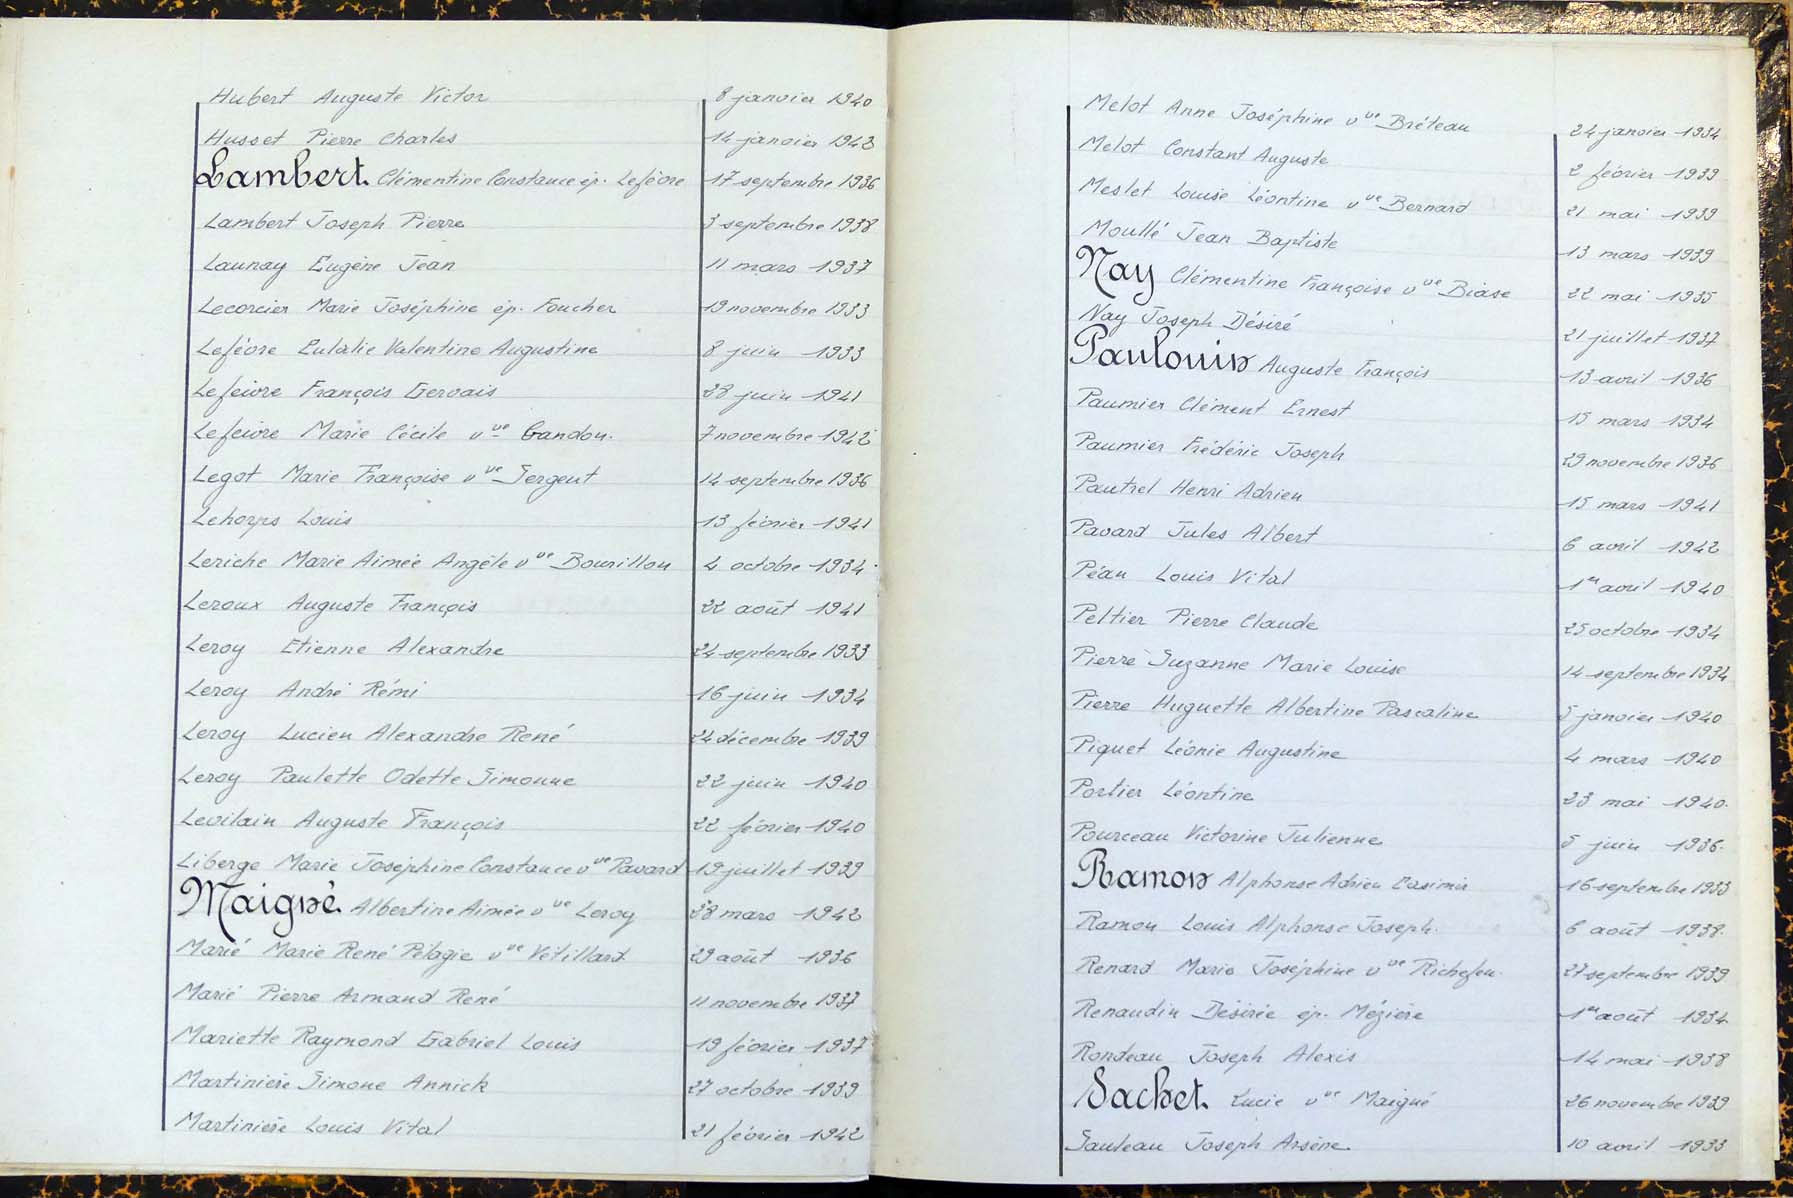 Hubert Auguste Victor 8 janvier 1940
Husset Pierre Charles 14 janvier 1943
Lambert Clémentine Constance ép. Lefèvre 17 septembre 1936
Lambert Joseph Pierre 3 septembre 1938
Launay Eugène Jean 11 mars 1937
Lecorcier Marie Joséphine ép. Foucher 19 novembre 1933
Lefèvre Eulalie Valentine Augustine 8 juin 1933
Lefeivre François Gervais 28 juin 1941
Lefeivre Marie Cécile vve Gandon. 7 novembre 1942
Legot Marie Françoise vve Sergent 14 septembre 1936
Lehorps Louis 13 février 1941
Leriche Marie Aimée Angèle vve Bourillon 4 octobre 1934
Leroux Auguste François 22 août 1941
Leroy Etienne Alexandre 24 septembre 1933
Leroy André Rémi 16 juin 1934
Leroy Lucien Alexandre René 24 décembre 1939
Leroy Paulette Odette Simonne 22 juin 1940
Levilain Auguste François 22 février 1940
Liberge Marie Joséphine Constance vve Pavard 19 juillet 1939
Maigné Albertine Aimée vve Leroy 28 mars 1942
Marié Marie René Pélagie vve Vétillard 29 août 1936
Marié Pierre Armand René 11 novembre 1937
Mariette Raymond Gabriel Louis 19 février 1937
Martinière Simone Annick 27 octobre 1939
Martinière Louis Vital 21 février 1942
Melot Anne Joséphine vve Bréteau 24 janvier 1934
Melot Constant Auguste 2 février 1939
Meslet Louise Léontine vve Bernard 21 mai 1939
Moullé Jean Baptiste 13 mars 1939
Nay Clémentine Françoise vve Biase 22 mai 1935
Nay Joseph Désiré 21 juillet 1937
Paulouin Auguste François 13 avril 1936
Paumier Clément Ernest 15 mars 1934
Paumier Frédéric Joseph 29 novembre 1936
Pautrel Henri Adrien 15 mars 1941
Pavard Jules Albert 6 avril 1942
Péan Louis Vital 1er avril 1940
Peltier Pierre Claude 25 octobre 1934
Pierre Suzanne Marie Louise 14 septembre 1934
Pierre Huguette Albertine Pascaline 5 janvier 1940
Piquet Léonie Augustine 4 mars 1940
Portier Léontine 23 mai 1940.
Pourceau Victorine Julienne 5 juin 1936.
Ramon Alphonse Adrien Casimir 16 septembre 1933
Ramon Louis Alphonse Joseph. 6 août 1938.
Renard Marie Joséphine vve Richefeu. 27 septembre 1939
Renaudin Désirée ép. Mézière 1er août 1934.
Rondeau Joseph Alexis 14 mai 1938
Sachet Lucie vve Maigné 26 novembre 1939
Sauleau Joseph Arsène 10 avril 1933